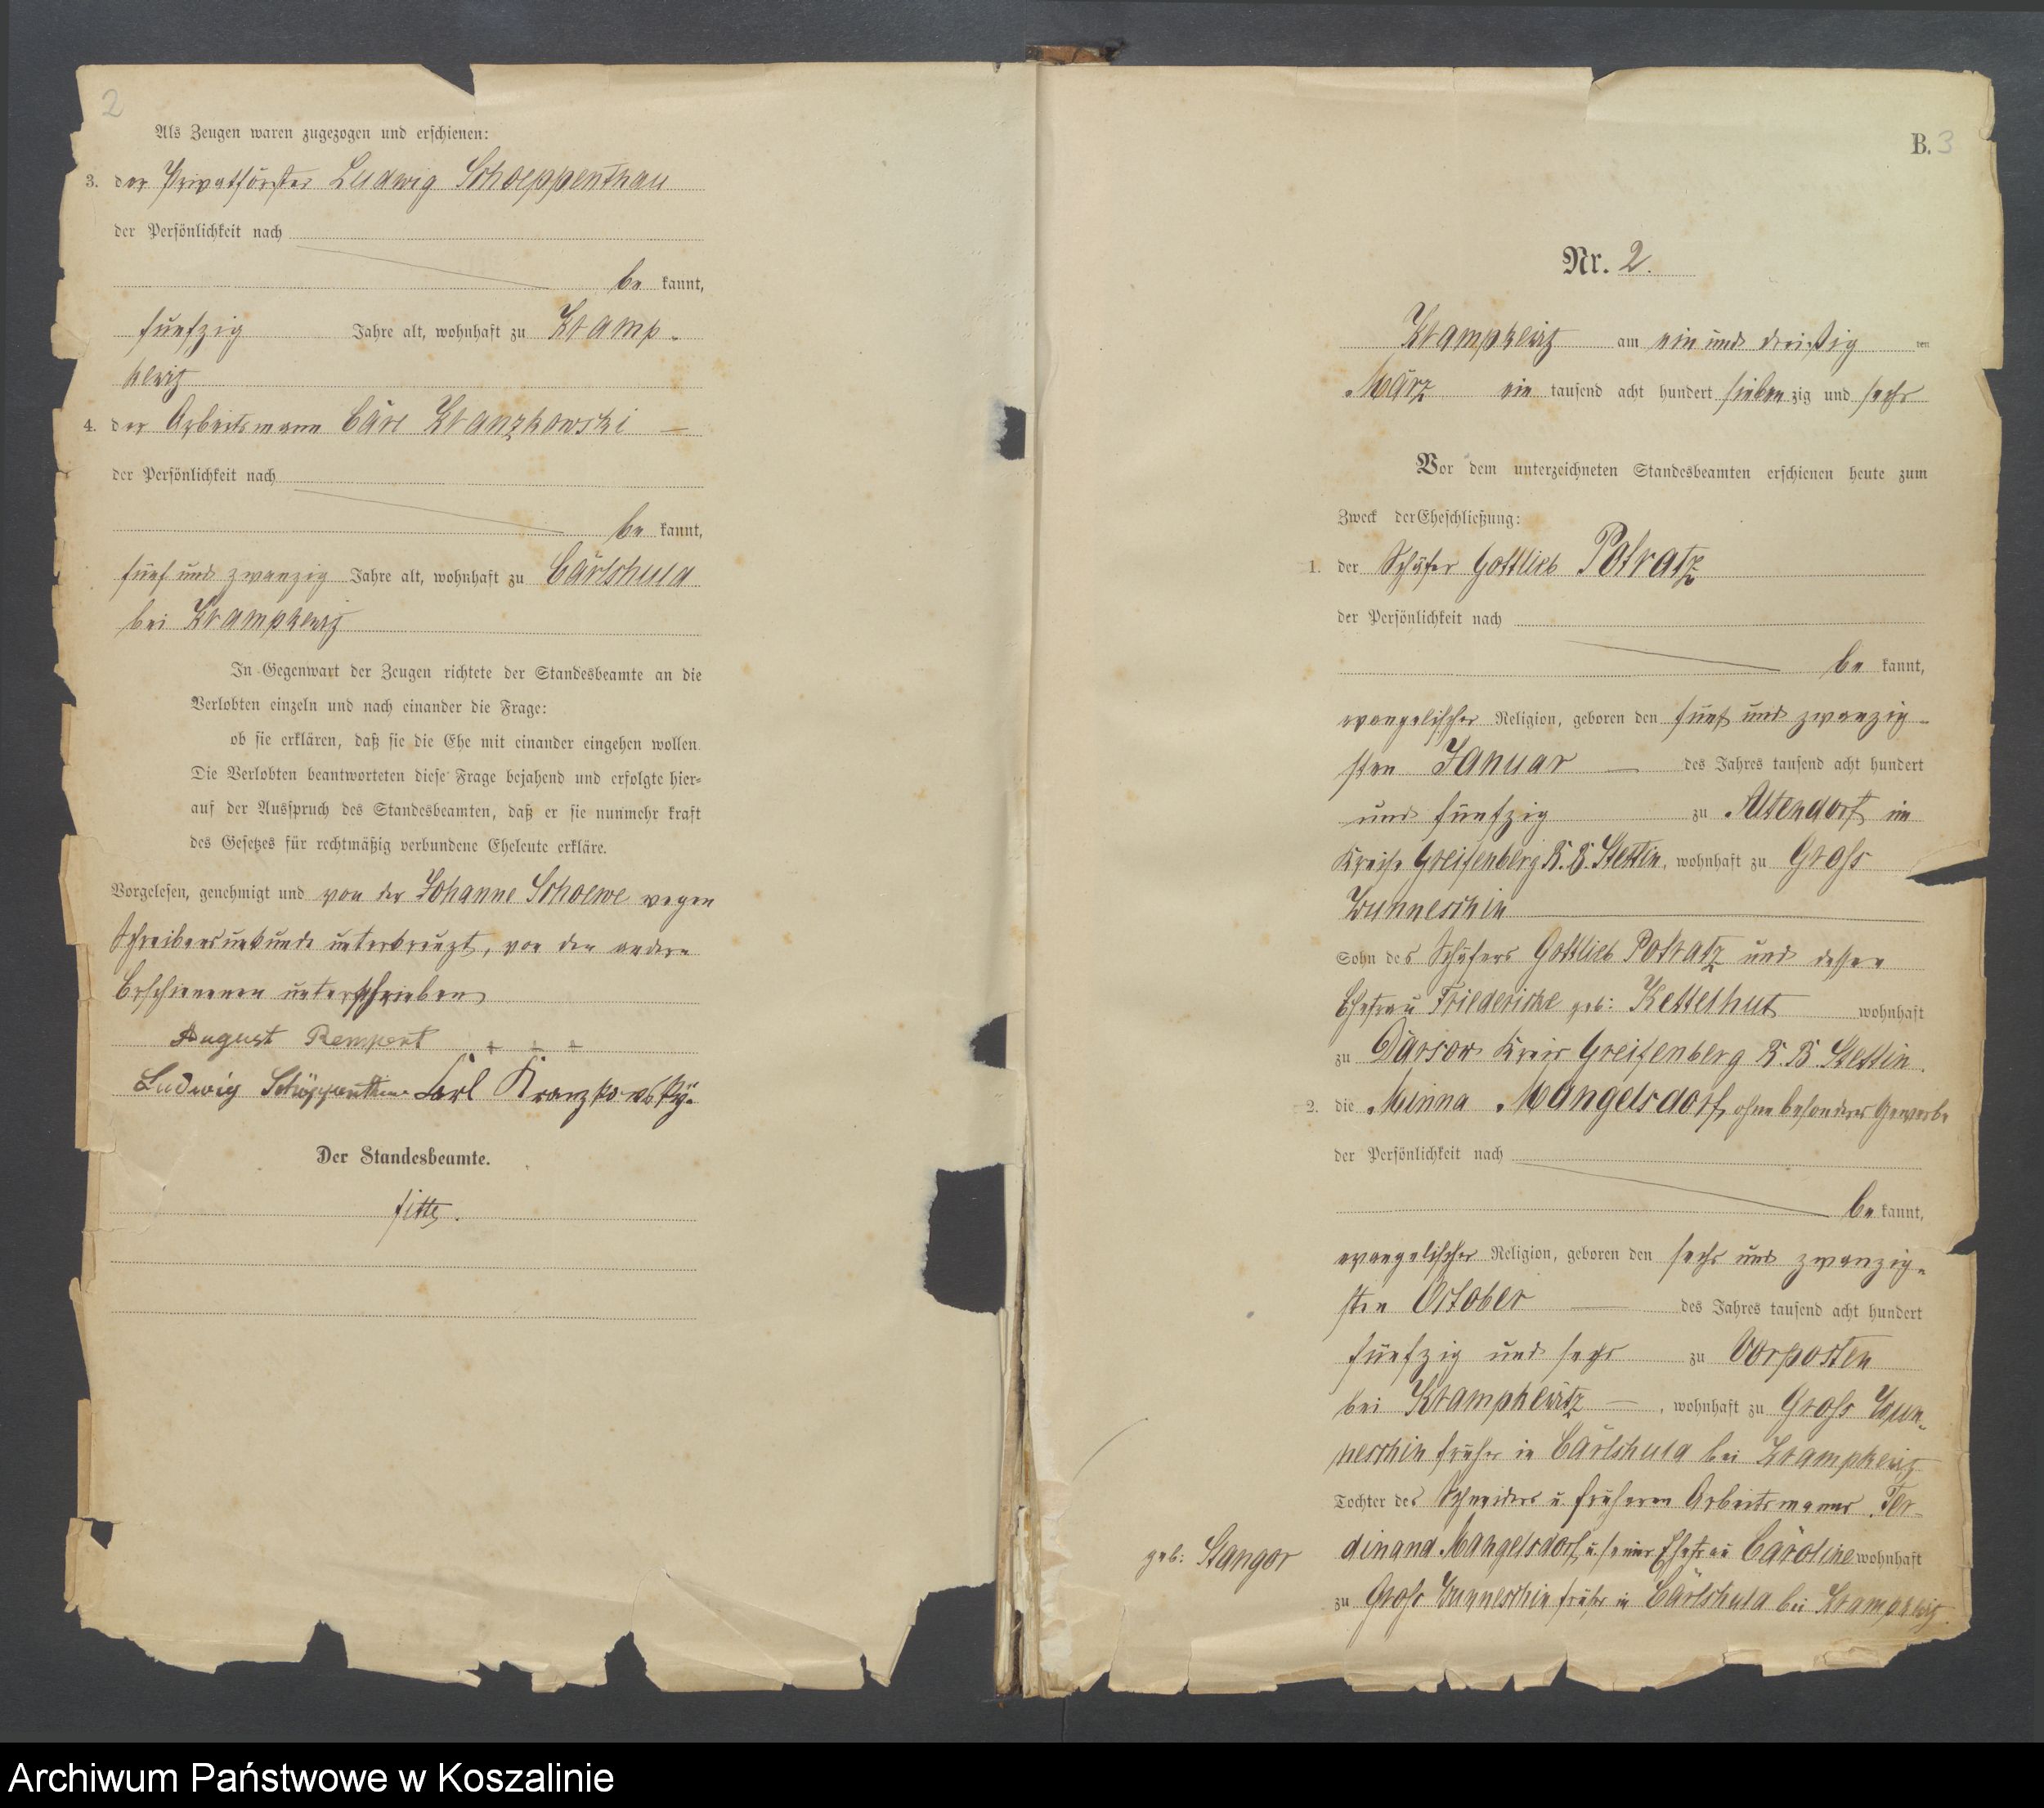 2
Als Zeugen waren zugezogen und erschienen:
3. der Privatförster Ludwig Schoeppenthau
der Persönlichkeit nach
be kannt,
fünfzig Jahre alt, wohnhaft zu Kramp-
kewitz
4. der Arbeitsmann Carl Kranzkowski
der Persönlichkeit nach
be kannt,
fünf und zwanzig Jahre alt, wohnhaft zu Carlshula
bei Krampkewitz
In Gegenwart der Zeugen richtete der Standesbeamte an die
Verlobten einzeln und nach einander die Frage:
ob sie erklären, daß sie die Ehe mit einander eingehen wollen.
Die Verlobten beantworteten diese Frage bejahend und erfolgte hier-
auf der Ausspruch des Standesbeamten, daß er sie nunmehr kraft
des Gesetzes für rechtmäßig verbundene Eheleute erkläre.
Vorgelesen, genehmigt und von der Johanne Schoewe wegen
Schreibensunkunde unterkreuzt, von den andern
Erschienenen unterschrieben
August Rempert + + +
Ludwig Schöppenthau Carl Kranzkowsky.
Der Standesbeamte.
B. 3
Nr. 2.
Krampkewitz am ein und dreißig ten
März ein tausend acht hundert sieben zig und sechs
Vor dem unterzeichneten Standesbeamten erschienen heute zum
Zweck der Eheschließung:
1. der Schäfer Gottlieb Potratz
der Persönlichkeit nach
be kannt,
evangelischer Religion, geboren den fünf und zwanzig-
sten Januar des Jahres tausend acht hundert
und fünfzig zu Altendorf im
Kreise Greifenberg R. B. Stettin, wohnhaft zu Groß
Wunneschin
Sohn des Schäfers Gottlieb Potratz und dessen
Ehefrau Friedericke geb: Kettelhut wohnhaft
zu Darsow Kreis Greifenberg R. B. Stettin.
2. die Minna Mangelsdorf, ohne besonderes Gewerbe
der Persönlichkeit nach
be kannt,
evangelischer Religion, geboren den sechs und zwanzig-
sten October des Jahres tausend acht hundert
fünfzig und sechs zu Vorposten
bei Krampkewitz, wohnhaft zu Groß Wun-
neschin früher in Carlshula bei Krampkewitz
Tochter des Schneiders u. früheren Arbeitsmanns Fer-
dinand Mangelsdorf u. seiner Ehefrau Caroline wohnhaft
geb: Stangor
zu Groß Wunneschin früher in Carlshula bei Krampkewitz
Archiwum Państwowe w Koszalinie